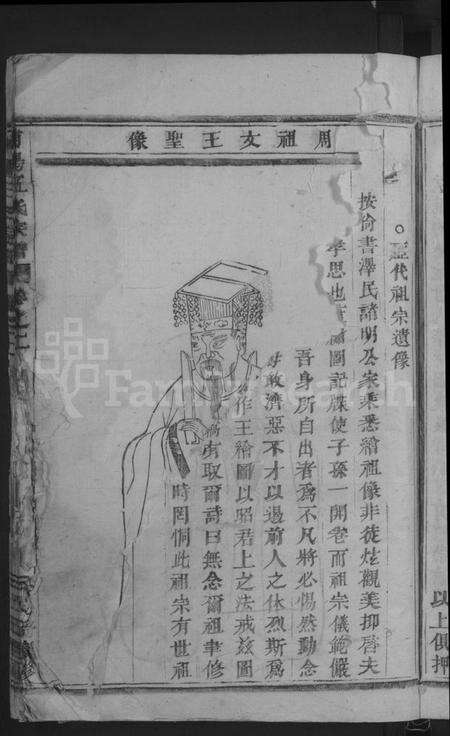 周祖文王聖像
○歷代祖宗遺像
按尚書澤民諸明公家乘悉繪祖像非徒炫觀美抑啓夫
孝思也 圖記牒使子孫一開卷而祖宗儀範儼
吾身所自出者爲不凡將必惕然動念
毋敢濟惡不才以遏前人之休烈斯爲
作王繪圖以昭君上之法戒玆圖
有取爾詩曰無念爾祖聿修
時罔恫此祖宗有世祖
以上俱押
FamilySearch